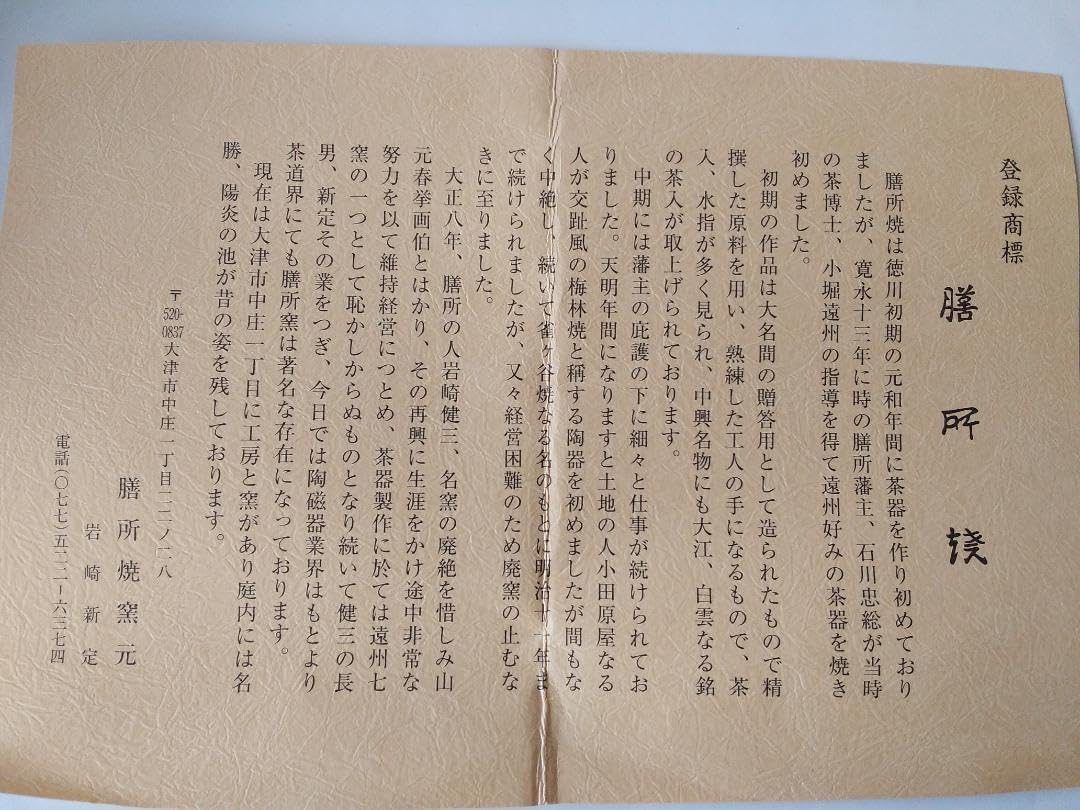 登録商標
膳所焼
膳所焼は徳川初期の元和年間に茶器を作り初めており
ましたが、寛永十三年に時の膳所藩主、石川忠総が当時
の茶博士、小堀遠州の指導を得て遠州好みの茶器を焼き
初めました。
初期の作品は大名間の贈答用として造られたもので精
撰した原料を用い、熟練した工人の手になるもので、茶
入、水指が多く見られ、中興名物にも大江、白雲なる銘
の茶入が取上げられております。
中期には藩主の庇護の下に細々と仕事が続けられてお
りました。天明年間になりますと土地の人小田原屋なる
人が交趾風の梅林焼と稱する陶器を初めましたが間もな
く中絶し、続いて雀ヶ谷焼なる名のもとに明治十一年ま
で続けられましたが、又々経営困難のため廃窯の止むな
きに至りました。
大正八年、膳所の人岩崎健三、名窯の廃絶を惜しみ山
元春挙画伯とはかり、その再興に生涯をかけ途中非常な
努力を以て維持経営につとめ、茶器製作に於ては遠州七
窯の一つとして恥かしからぬものとなり続いて健三の長
男、新定その業をつぎ、今日では陶磁器業界はもとより
茶道界にても膳所窯は著名な存在になっております。
現在は大津市中庄一丁目に工房と窯があり庭内には名
勝、陽炎の池が昔の姿を残しております。
〒520-0837大津市中庄一丁目二二ノ二八
膳所焼窯元
岩崎新定
電話(〇七七)五二二-六三七四